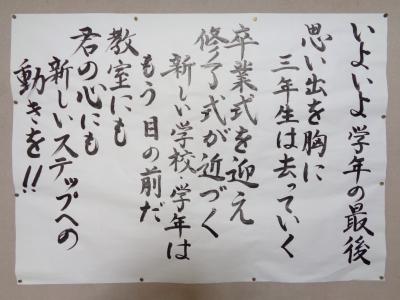 いよいよ学年の最後
思い出を胸に
三年生は去っていく
卒業式を迎え
修了式が近づく
新しい学校、学年は
もう目の前だ
教室にも
君の心にも
新しいステップへの
動きを!!